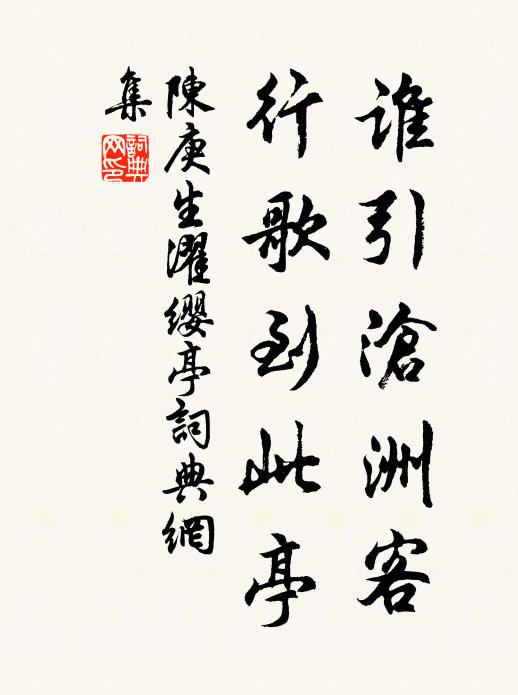 誰引滄洲客
行歌到此亭
陳庚生濯纓亭詞典網
集
詞典
网印